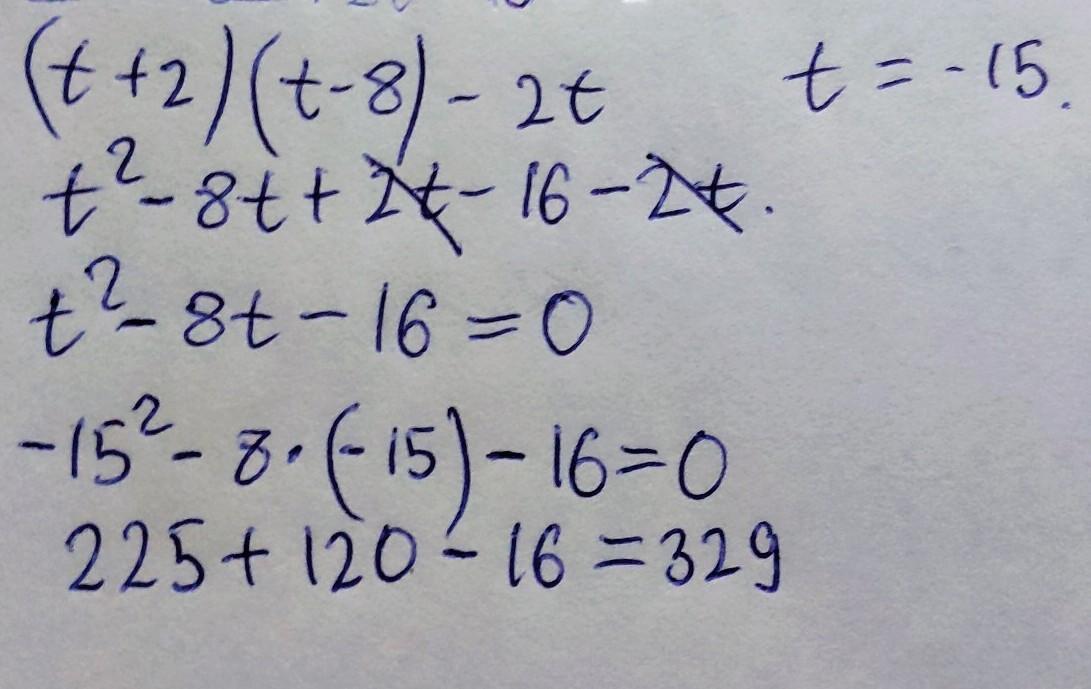 (t+2)(t-8) - 2t t = -15.
t² - 8t + 2t - 16 - 2t.
t² - 8t - 16 = 0
-15² - 8·(-15) - 16 = 0
225 + 120 - 16 = 329